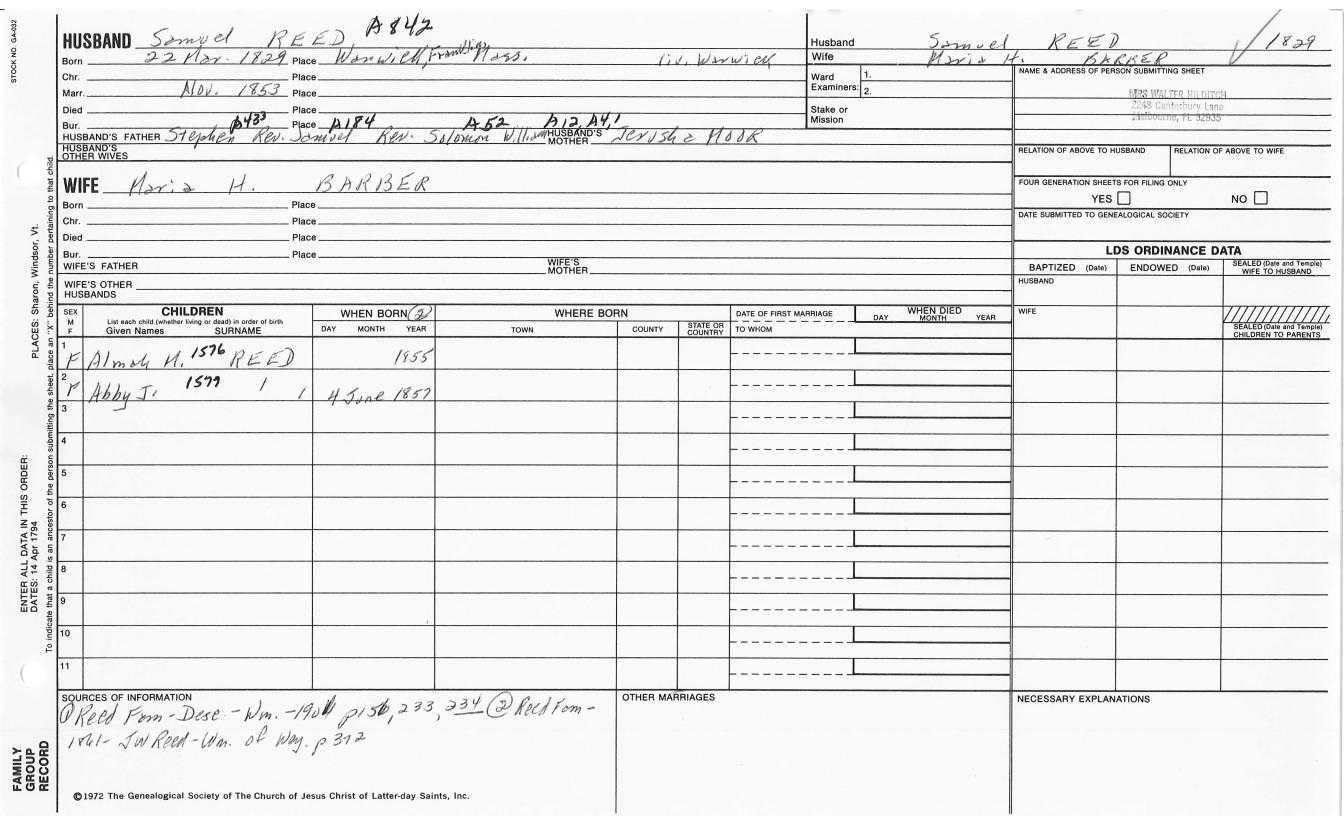 STOCK NO. GA-032
HUSBAND Samuel REED A842
Born 22 Mar. 1829 Place Warwick, Franklin, Mass. liv. Warwick
Chr. Place
Marr. Nov. 1853 Place
Died Place
Bur. Place
A433 A184 A52 A12, A4,1
HUSBAND'S FATHER Stephen Rev. Samuel Rev. Solomon William HUSBAND'S MOTHER Jerusha MOOR
HUSBAND'S OTHER WIVES
Husband Samuel REED 1829
Wife Maria H. BARBER
Ward Examiners: 1.
2.
Stake or Mission
NAME & ADDRESS OF PERSON SUBMITTING SHEET
MRS WALTER HILDITCH
2248 Canterbury Lane
Melbourne, FL 32935
RELATION OF ABOVE TO HUSBAND RELATION OF ABOVE TO WIFE
FOUR GENERATION SHEETS FOR FILING ONLY
YES NO
DATE SUBMITTED TO GENEALOGICAL SOCIETY
WIFE Maria H. BARBER
Born Place
Chr. Place
Died Place
Bur. Place
WIFE'S FATHER WIFE'S MOTHER
WIFE'S OTHER HUSBANDS
LDS ORDINANCE DATA
BAPTIZED (Date) ENDOWED (Date) SEALED (Date and Temple) WIFE TO HUSBAND
HUSBAND
WIFE
SEALED (Date and Temple) CHILDREN TO PARENTS
SEX M F
CHILDREN
List each child (whether living or dead) in order of birth
Given Names SURNAME
WHEN BORN (2)
DAY MONTH YEAR
WHERE BORN
TOWN COUNTY STATE OR COUNTRY
DATE OF FIRST MARRIAGE
TO WHOM
WHEN DIED
DAY MONTH YEAR
1 F Almah H. 1576 REED 1955
2 F Abby J. 1577 4 June 1857
3
4
5
6
7
8
9
10
11
SOURCES OF INFORMATION
① Reed Fam-Desc.-Wm.-190 p156, 233, 234 ② Reed Fam-
1861- JW Reed-Wm. of Wey. p 372
OTHER MARRIAGES
NECESSARY EXPLANATIONS
©1972 The Genealogical Society of The Church of Jesus Christ of Latter-day Saints, Inc.
FAMILY GROUP RECORD
ENTER ALL DATA IN THIS ORDER:
DATES: 14 Apr 1794
PLACES: Sharon, Windsor, Vt.
To indicate that a child is an ancestor of the person submitting the sheet, place an "X" behind the number pertaining to that child.